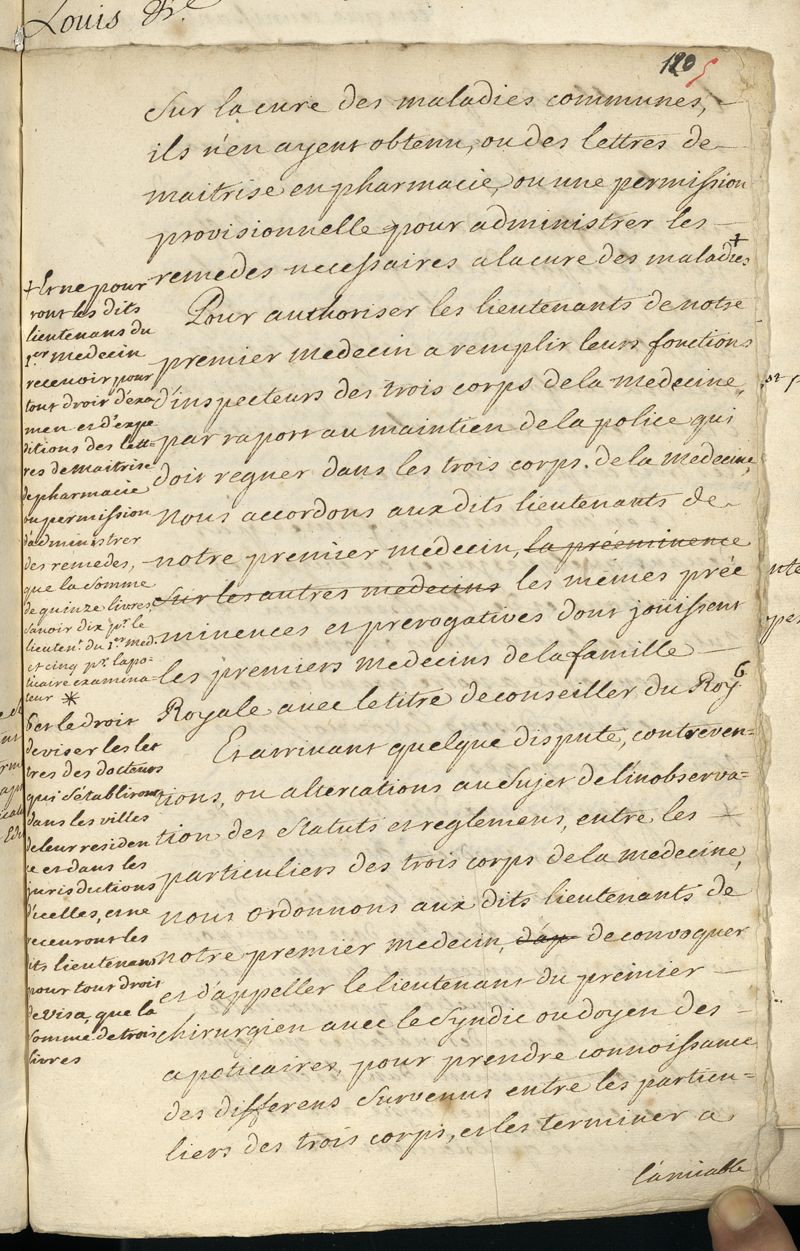 Louis
120 5
Sur la cure des maladies communes,
ils n'en ayent obtenu, ou des lettres de
maitrise en pharmacie, ou une permission
provisionnelle pour administrer les
remedes necessaires a la cure des maladies +
Pour authoriser les lieutenants de notre
premier medecin a remplir leurs fonctions
d'inspecteurs des trois corps de la medecine,
par raport au maintien de la police qui
doit regner dans les trois corps de la medecine,
nous accordons aux dits lieutenants de
notre premier medecin, la préeminence
sur les autres medecins les mêmes prée
minences et prerogatives dont joüissent
les premiers medecins de la famille
Royale avec le titre de conseiller du Roy 6
Et arrivant quelque dispute, contreven=
tions, ou altercations au sujet de l'inobserva=
tion des statuts et reglemens, entre les
particuliers des trois corps de la medecine,
nous ordonnons aux dits lieutenants de
notre premier medecin, d'ap de convoquer
et d'appeller le lieutenant du premier
chirurgien avec le Syndic ou doyen des
apoticaires, pour prendre connoissance
des differens survenus entre les particu=
liers des trois corps, et les terminer a
l'amiable
+ Et ne pour
ront les dits
lieutenans du
1.er medecin
recevoir pour
tout droit d'exa
men et d'expe
ditions des let=
tres de maitrise
de pharmacie
ou permission
d'administrer
des remedes,
que la somme
de quinze livres,
savoir dix pr. le
lieuten. du 1.er med.
et cinq pr. l'apo=
ticaire examina=
teur *
6 et le droit
de viser les let
tres des docteurs
qui s'établiront
dans les villes
de leur residen
ce et dans les
jurisdictions
d'icelles, et ne
recevront les
dits lieutenans
pour tout droit
de visa, que la
somme de trois
livres